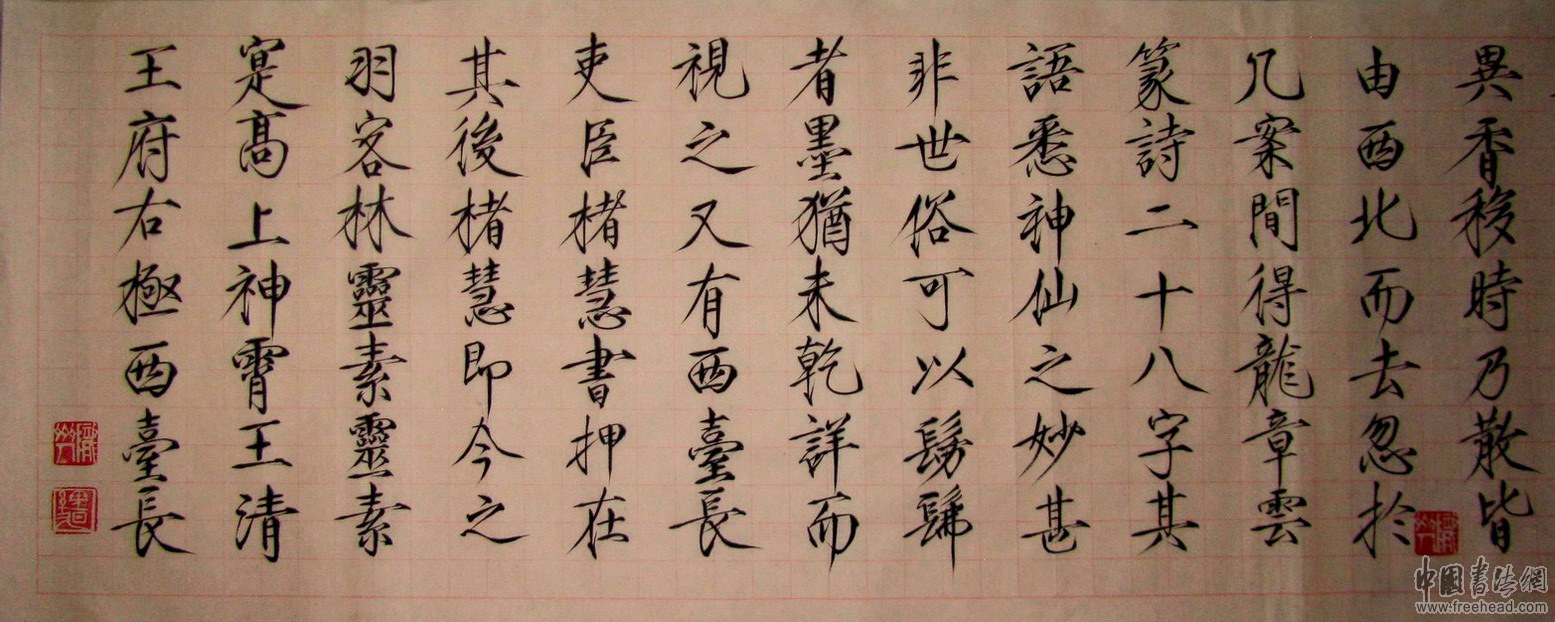 異香移時乃散皆
由西北而去忽於
几案間得龍章雲
篆詩二十八字其
語悉神仙之妙甚
非世俗可以髣髴
者墨猶未乾詳而
視之又有西臺長
吏臣楮慧書押在
其後楮慧即今之
羽客林靈素靈素
寔高上神霄玉清
王府右極西臺長
中國書法網
www.freehead.com